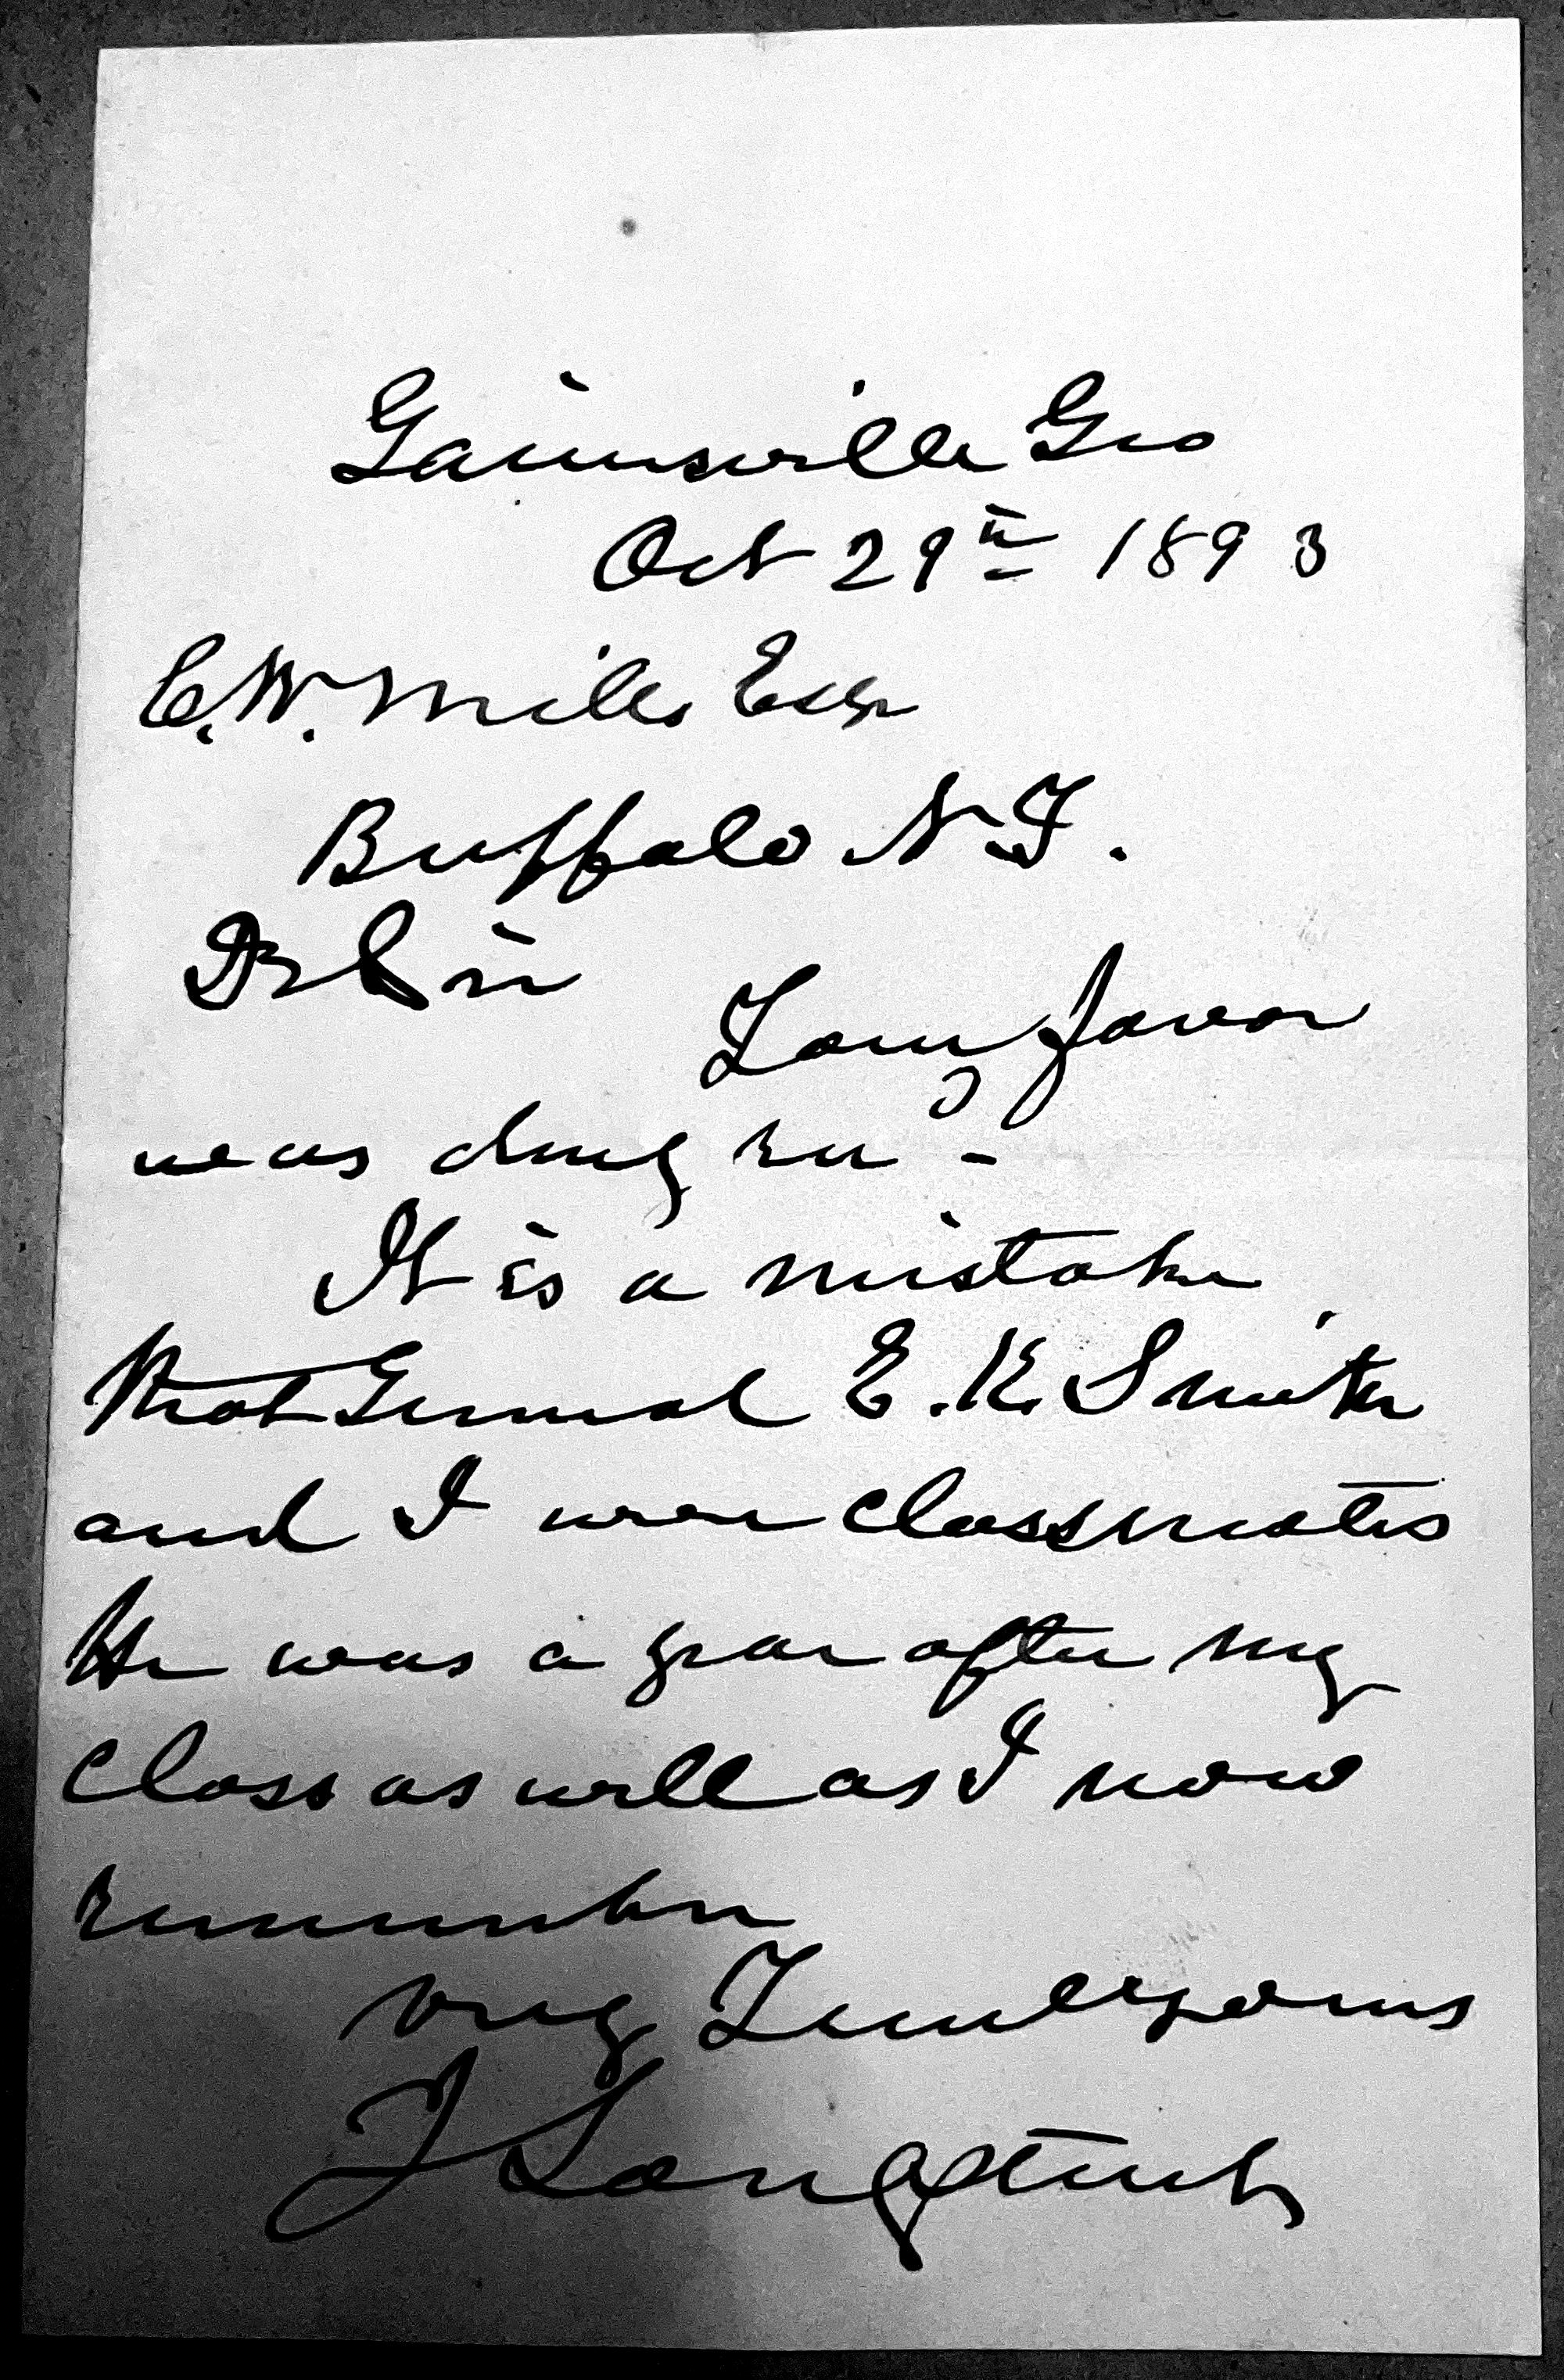 Gainesville Geo
Oct 29th 1893
C. W. Mills Esqr
Buffalo N. Y.
Dr Sir
Your favor
was duly rec -
It is a mistake
that General E. K. Smith
and I were classmates
He was a year after my
class as well as I now
remember
Very Truly yours
J Longstreet